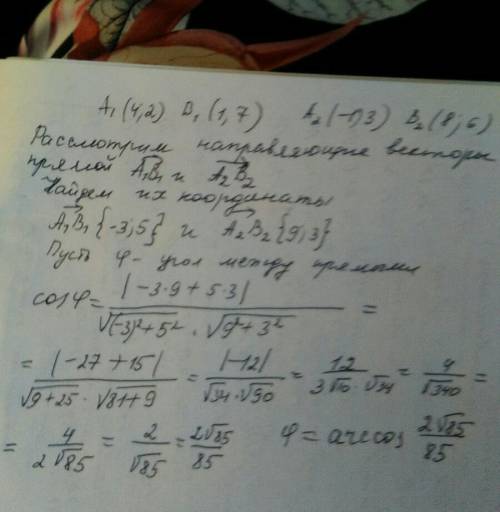 A₁(4;2) B₁(1,7) A₂(-1;3) B₂(8;6)
Рассмотрим направляющие векторы
прямой A₁B₁ и A₂B₂
Найдем их координаты
A₁B₁{-3;5} и A₂B₂{9;3}
Пусть φ - угол между прямыми
cosφ = |-3·9+5·3| / √(-3)²+5² · √9²+3² =
= |-27+15| / √9+25 · √81+9 = |-12| / √34·√90 = 12 / 3√10·√34 = 4 / √340 =
= 4 / 2√85 = 2 / √85 = 2√85 / 85 φ = arccos 2√85 / 85